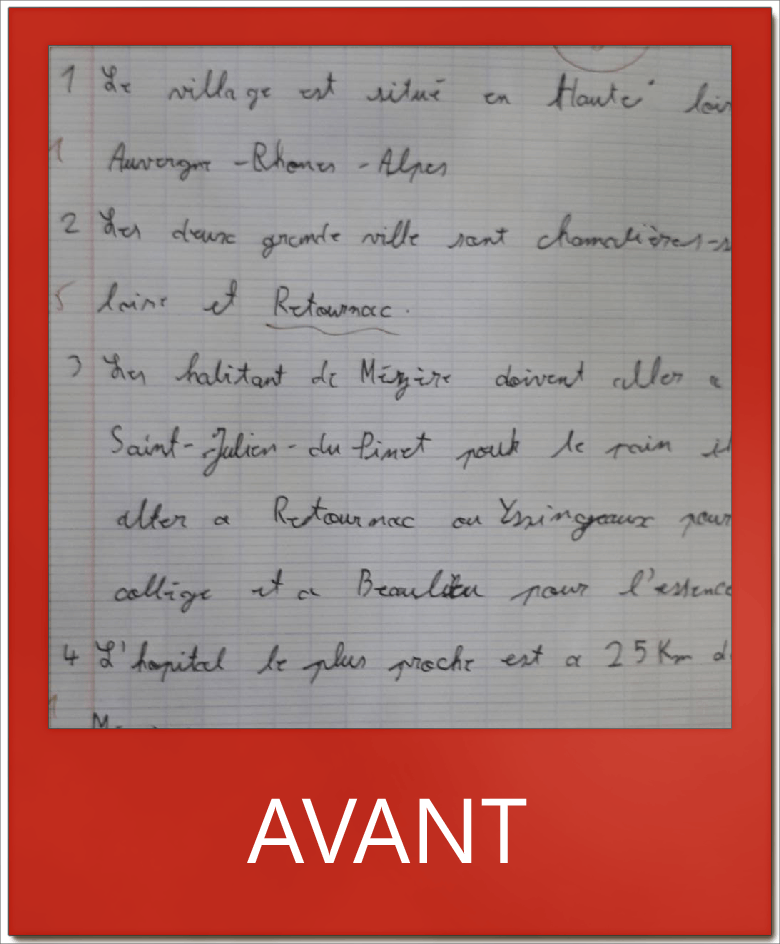 1 Le village est situé en Haute loir
1 Auvergne - Rhones - Alpes
2 Les deux grande ville sont chamalières-s
5 loire et Retournac.
3 Les habitant de Mézère doivent aller a
Saint-Julien-du Pinet pour le pain il
aller a Retournac ou Yssingeaux pour
collège et a Beaulieu pour l'essence
4 L'hopital le plus proche est a 25 Km d
1
AVANT